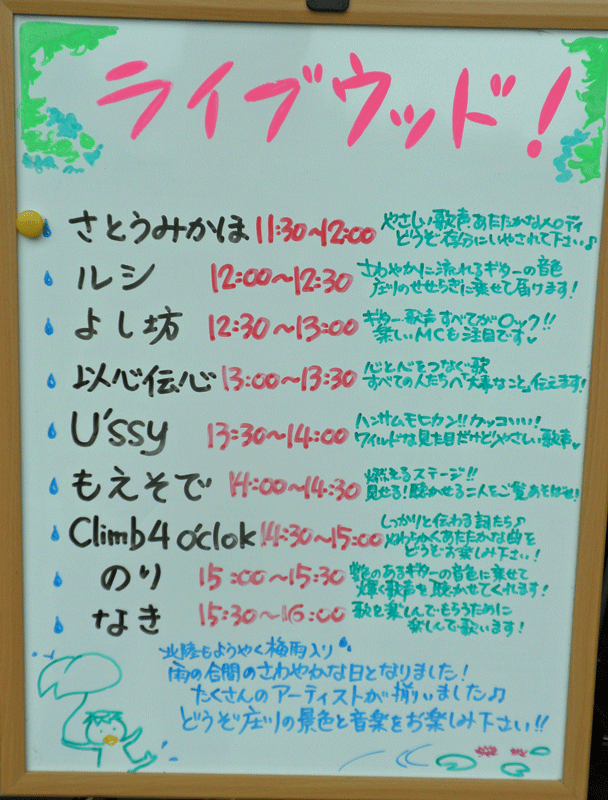 ライブウッド!
さとうみかほ 11:30~12:00 やさしい歌声、あたたかなメロディ
どうぞ存分にいやされて下さい♪
ルシ 12:00~12:30 さわやかに流れるギターの音色
庄川のせせらぎに乗せて届けます!
よし坊 12:30~13:00 ギター・歌声すべてがロック!!
楽しいMCも注目です♥
以心伝心 13:00~13:30 心と心をつなぐ歌
すべての人たちへ「大事なこと」伝えます!
U'ssy 13:30~14:00 ハンサムモヒカン!!カッコいい!
ワイルドな見た目だけどやさしい歌声♥
もえそで 14:00~14:30 燃えるステージ!!
見せる!聴かせる二人をご覧あそばせ!
Climb4 o'clok 14:30~15:00 しっかりと伝わる詞たち♪
やわらかくあたたかな曲を
どうぞお楽しみ下さい!
のり 15:00~15:30 艶のあるギターの音色に乗せて
輝く歌声を聴かせてくれます!
なき 15:30~16:00 歌を楽しんでもらうために
楽しんで歌います!
北陸もようやく梅雨入り
雨の合間のさわやかな日となりました!
たくさんのアーティストが揃いました♪
どうぞ庄川の景色と音楽をお楽しみ下さい!!